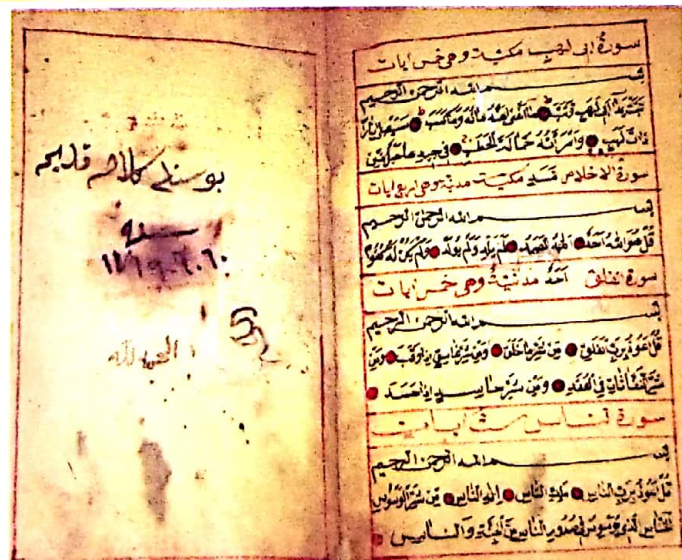 سورة ابى لهب مكية وهى خمس ايات
بسم الله الرحمن الرحيم
تَبَّتْ يَدَا اَبِى لَهَبٍ وَتَبَّ مَا اَغْنٰى عَنْهُ مَالُهُ وَمَا كَسَبَ سَيَصْلٰى نَارًا
ذَاتَ لَهَبٍ وَامْرَأَتُهُ حَمَّالَةَ الْحَطَبِ فِى جِيدِهَا حَبْلٌ مِنْ
سورة الاخلاص مَسَدٍ مكية مدنية وهى اربع ايات
بسم الله الرحمن الرحيم
قُلْ هُوَ اللّٰهُ اَحَدٌ اَللّٰهُ الصَّمَدُ لَمْ يَلِدْ وَلَمْ يُولَدْ وَلَمْ يَكُنْ لَهُ كُفُوًا
سورة الفلق اَحَدٌ مدنية وهى خمس ايات
بسم الله الرحمن الرحيم
قُلْ اَعُوذُ بِرَبِّ الْفَلَقِ مِنْ شَرِّ مَا خَلَقَ وَمِنْ شَرِّ غَاسِقٍ اِذَا وَقَبَ وَمِنْ
شَرِّ النَّفَّاثَاتِ فِى الْعُقَدِ وَمِنْ شَرِّ حَاسِدٍ اِذَا حَسَدَ
سورة الناس ست ايات
بسم الله الرحمن الرحيم
قُلْ اَعُوذُ بِرَبِّ النَّاسِ مَلِكِ النَّاسِ اِلٰهِ النَّاسِ مِنْ شَرِّ الْوَسْوَاسِ
الْخَنَّاسِ الَّذِى يُوَسْوِسُ فِى صُدُورِ النَّاسِ مِنَ الْجِنَّةِ وَالنَّاسِ
كلامه قديمه
سنه
الحمد لله